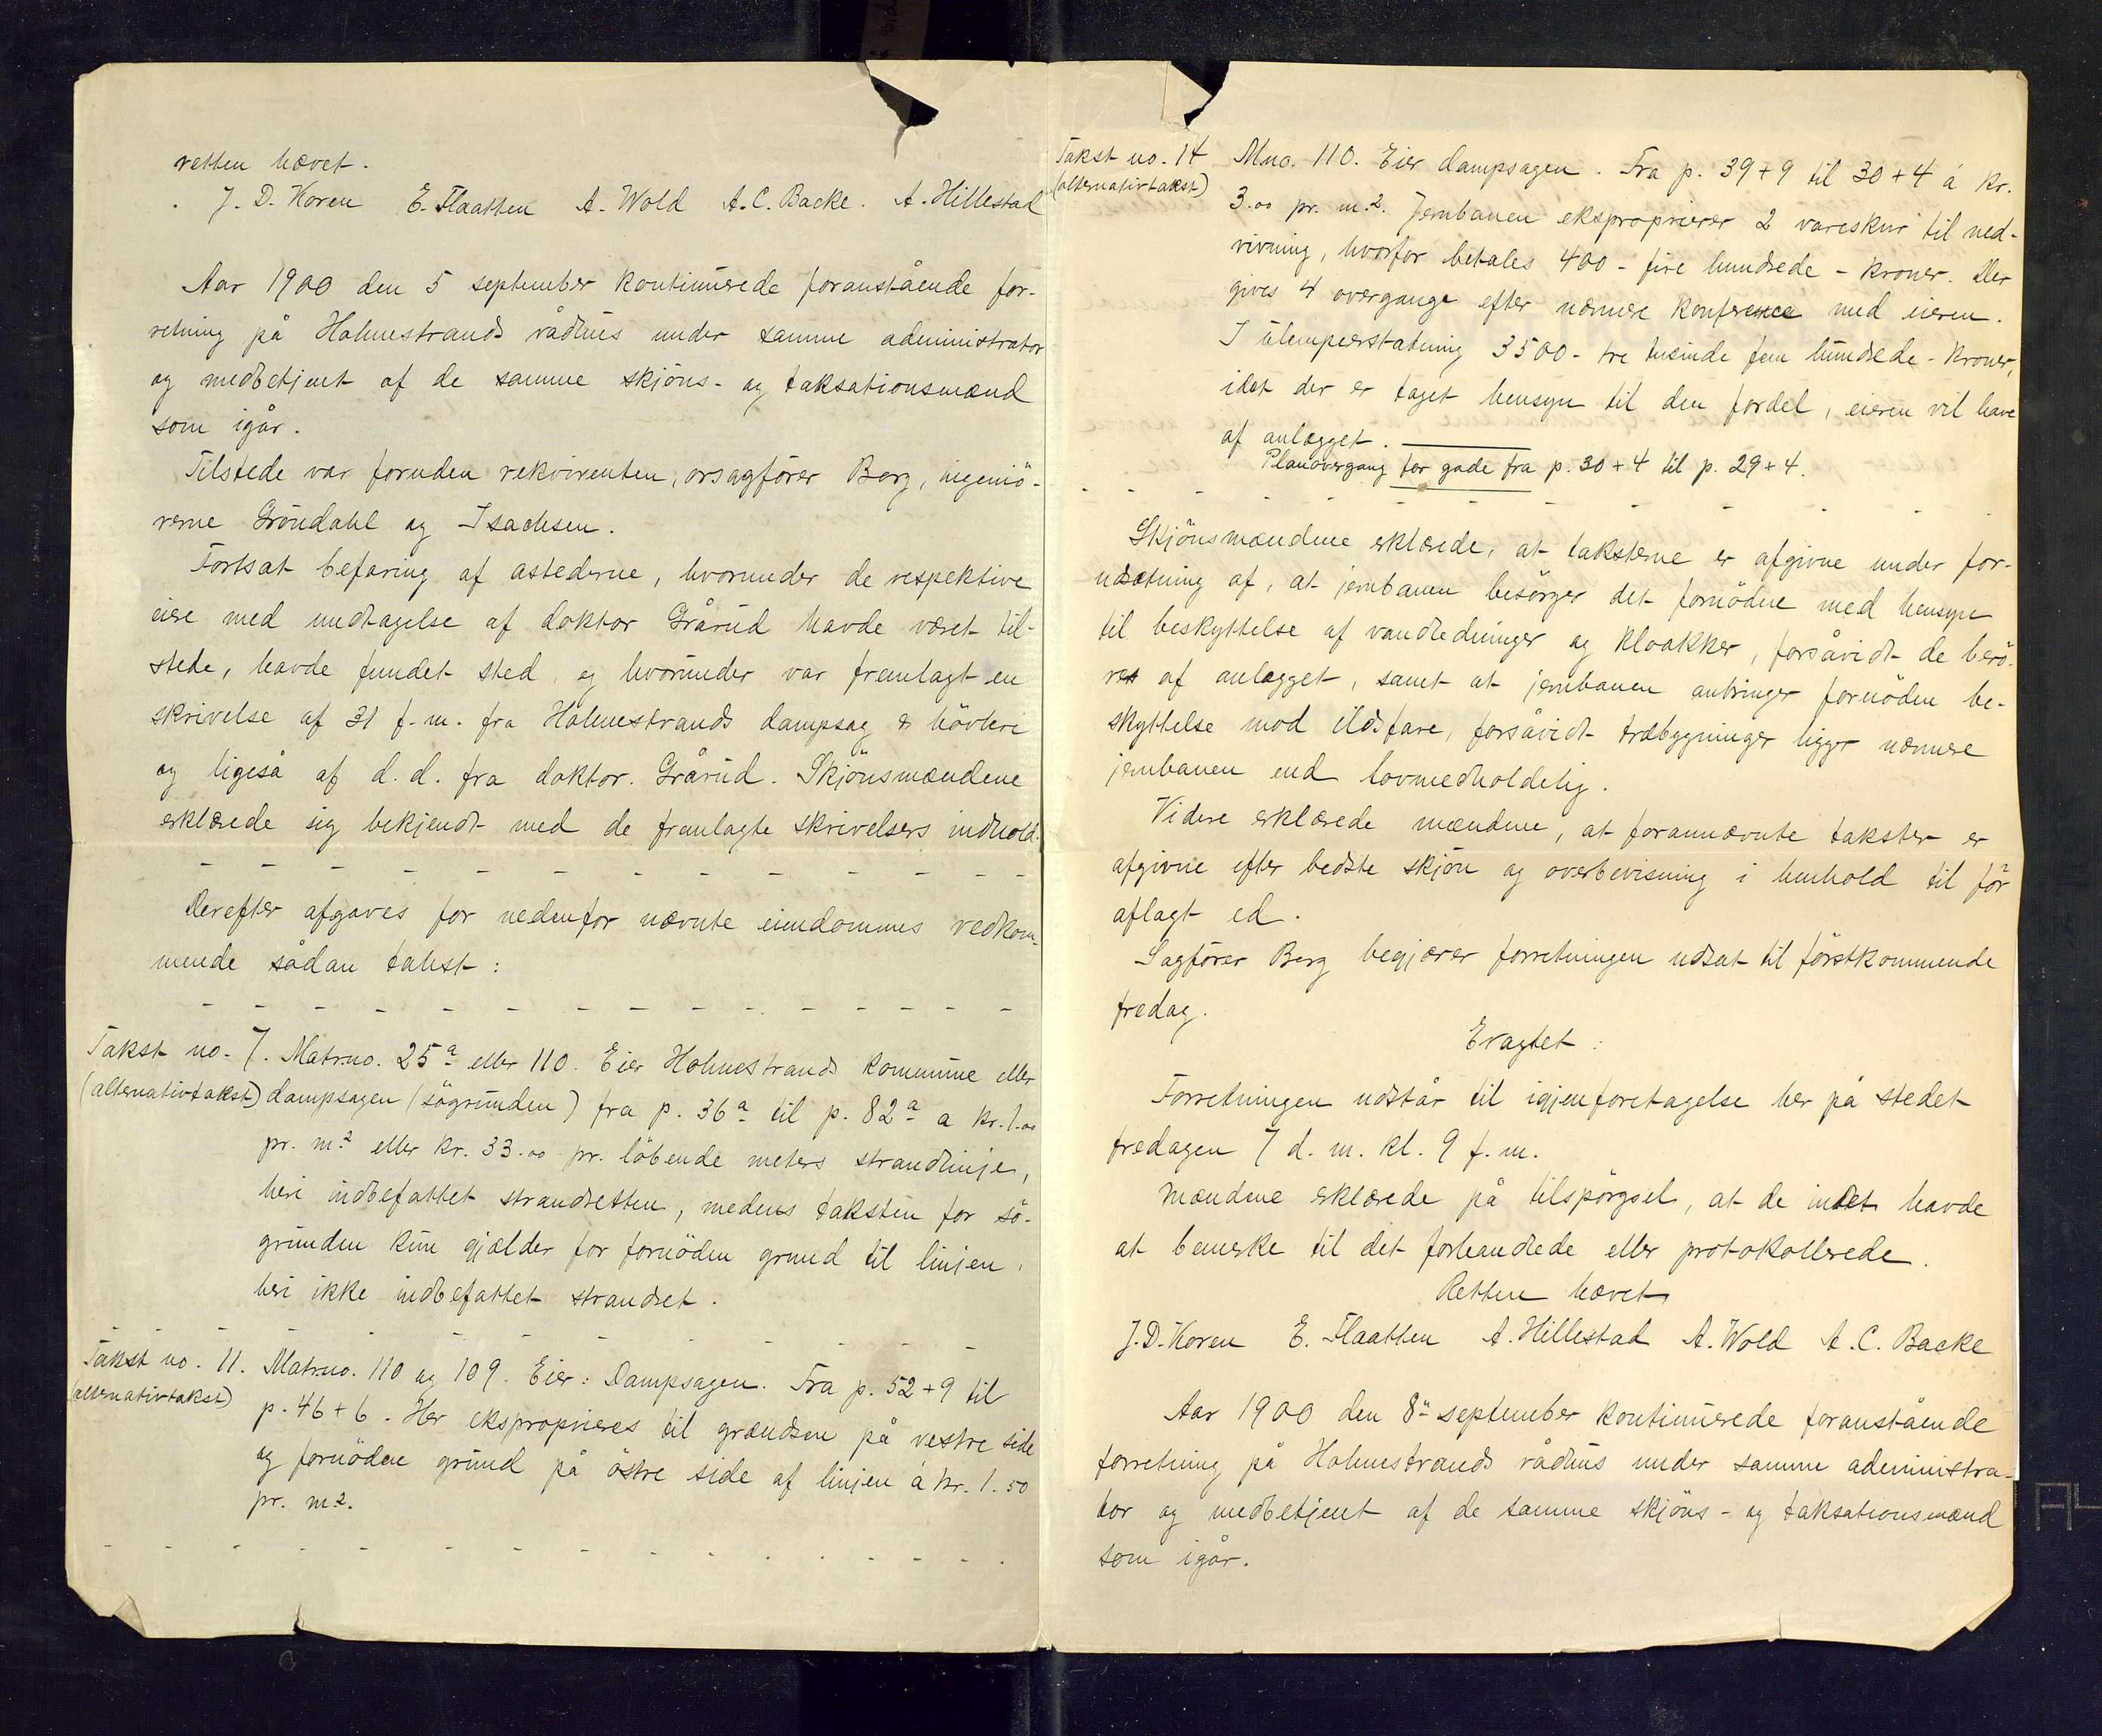 retten hævet.
J. D. Koren E. Flaatten A. Wold A. C. Backe. A. Hillestad
Aar 1900 den 5 september kontinuerede foranstående for-
retning på Holmestrands rådhus under samme administrator
og medbetjent af de samme skjöns- og taksationsmænd
som igår.
Tilstede var foruden rekvirenten, orsagförer Berg, ingeniö-
rerne Gröndahl og Isachsen.
Fortsat befaring af åstederne, hvorunder de respektive
eiere med undtagelse af doktor Grårud havde været til-
stede, havde fundet sted, og hvorunder var fremlagt en
skrivelse af 31 f. m. fra Holmestrands dampsag & hövleri
og ligeså af d. d. fra doktor Grårud. Skjönsmændene
erklærede sig bekjendt med de fremlagte skrivelsers indhold.
- - - - - - - - - - - -
Derefter afgaves for nedenfor nævnte eiendommes vedkom-
mende sådan takst:
- - - - - - - - - - - -
Takst no. 7. Matr.no. 25a eller 110. Eier Holmestrands kommune eller
(alternativtakst) dampsagen (sögrunden) fra p. 36a til p. 82a a kr. 1.00
pr. m2 eller kr. 33.00 pr. löbende meters strandlinje,
heri indbefattet strandretten, medens taksten for sö-
grunden kun gjælder for fornöden grund til linjen,
heri ikke indbefattet strandret.
- - - - - - - - - - - -
Takst no. 11. Matr.no. 110 og 109. Eier: Dampsagen. Fra p. 52+9 til
(alternativtakst) p. 46+6. Her eksproprieres til grændsen på vestre side
og fornöden grund på östre side af linjen á kr. 1.50
pr. m2.
- - - - - - - - - - - -
Takst no. 14 Mno. 110. Eier dampsagen. Fra p. 39+9 til 30+4 á kr.
(alternativtakst) 3.00 pr. m.2. Jernbanen eksproprierer 2 vareskur til ned-
rivning, hvorfor betales 400 - fire hundrede - kroner. Der
gives 4 overgange efter nærmere konference med eieren.
I ulempeerstatning 3500 - tre tusinde fem hundrede - kroner,
idet der er taget hensyn til den fordel, eieren vil have
af anlægget.
Planovergang for gade fra p. 30+4 til p. 29+4.
- - - - - - - - - - - -
Skjönsmændene erklærede, at taksterne er afgivne under for-
udsætning af, at jernbanen besörger det fornödne med hensyn
til beskyttelse af vandledninger og kloakker, forsåvidt de berö-
res af anlægget, samt at jernbanen anbringer fornöden be-
skyttelse mod ildsfare, forsåvidt træbygninger ligger nærmere
jernbanen end lovmedholdelig.
Videre erklærede mændene, at forannævnte takster er
afgivne efter bedste skjön og overbevisning i henhold til för
aflagt ed.
Sagförer Berg begjærer forretningen udsat til förstkommende
fredag.
Eragtet:
Forretningen udstår til igjenforetagelse her på stedet
fredagen 7 d. m. kl. 9 f. m.
Mændene erklærede på tilspörgsel, at de intet havde
at bemerke til det forhandlede eller protokollerede.
Retten hævet
J. D. Koren E. Flaatten A. Hillestad A. Wold A. C. Backe
Aar 1900 den 8de september kontinuerede foranstående
forretning på Holmestrands rådhus under samme administra-
tor og medbetjent af de samme skjöns- og taksationsmænd
som igår.